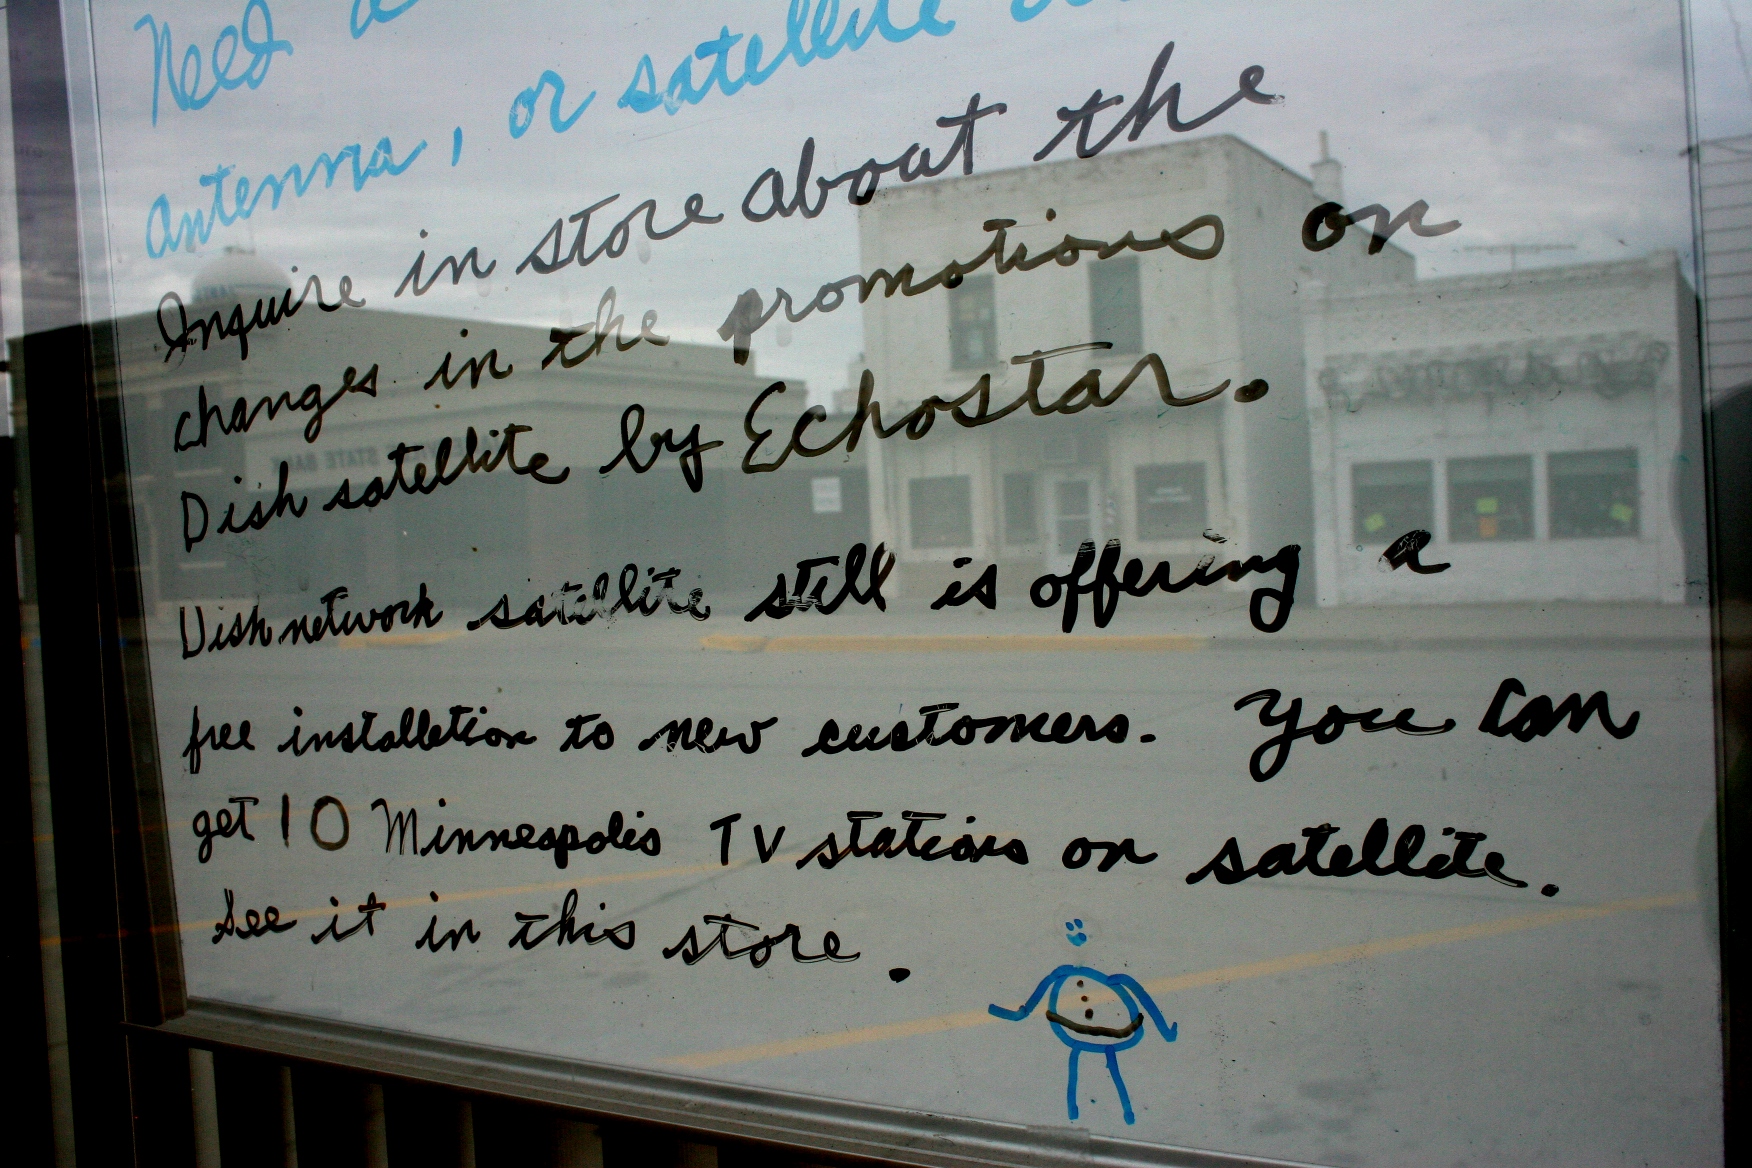 Need a
antenna, or satellite
Inquire in store about the
changes in the promotions on
Dish satellite by Echostar.
Dish network satellite still is offering a
free installetion to new customers. You can
get 10 Minneapolis TV stations on satellite.
See it in this store.
STATE BANK